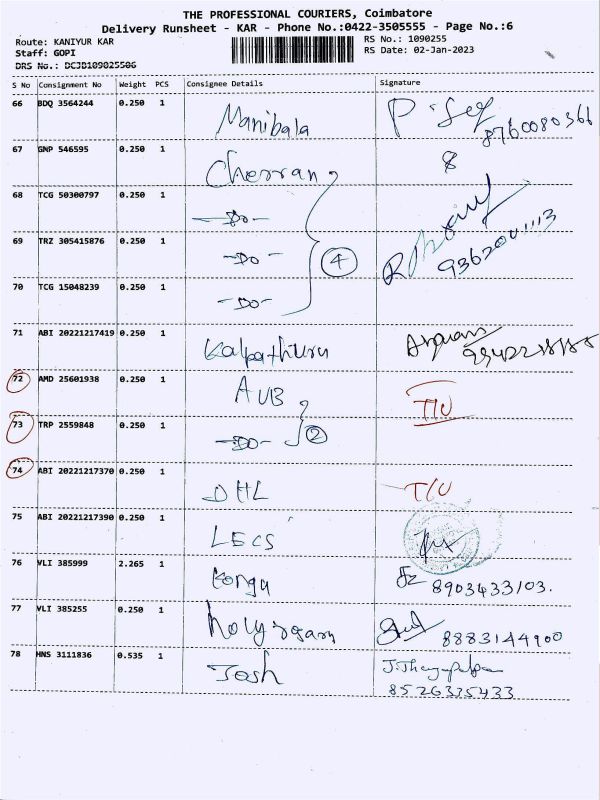 THE PROFESSIONAL COURIERS, Coimbatore
Delivery Runsheet - KAR - Phone No.:0422-3505555 - Page No.:6
Route: KANIYUR KAR RS No.: 1090255
Staff: GOPI RS Date: 02-Jan-2023
DRS No.: DCJB109025506
S No Consignment No Weight PCS Consignee Details Signature
66 BDQ 3564244 0.250 1 Manibala
8760080366
67 GNP 546595 0.250 1 Cherran
68 TCG 50300797 0.250 1 -Do-
69 TRZ 305415876 0.250 1 -Do- 4
70 TCG 15048239 0.250 1 -Do-
71 ABI 20221217419 0.250 1 Kalpathuru
72 AMD 25601938 0.250 1 AUB
73 TRP 2559848 0.250 1 -Do- 2
74 ABI 20221217370 0.250 1 DHL
75 ABI 20221217390 0.250 1 LECS
76 VLI 385999 2.265 1 Kongu 8903433103.
77 VLI 385255 0.250 1 8883144900
78 HNS 3111836 0.535 1 Josh
8526335433